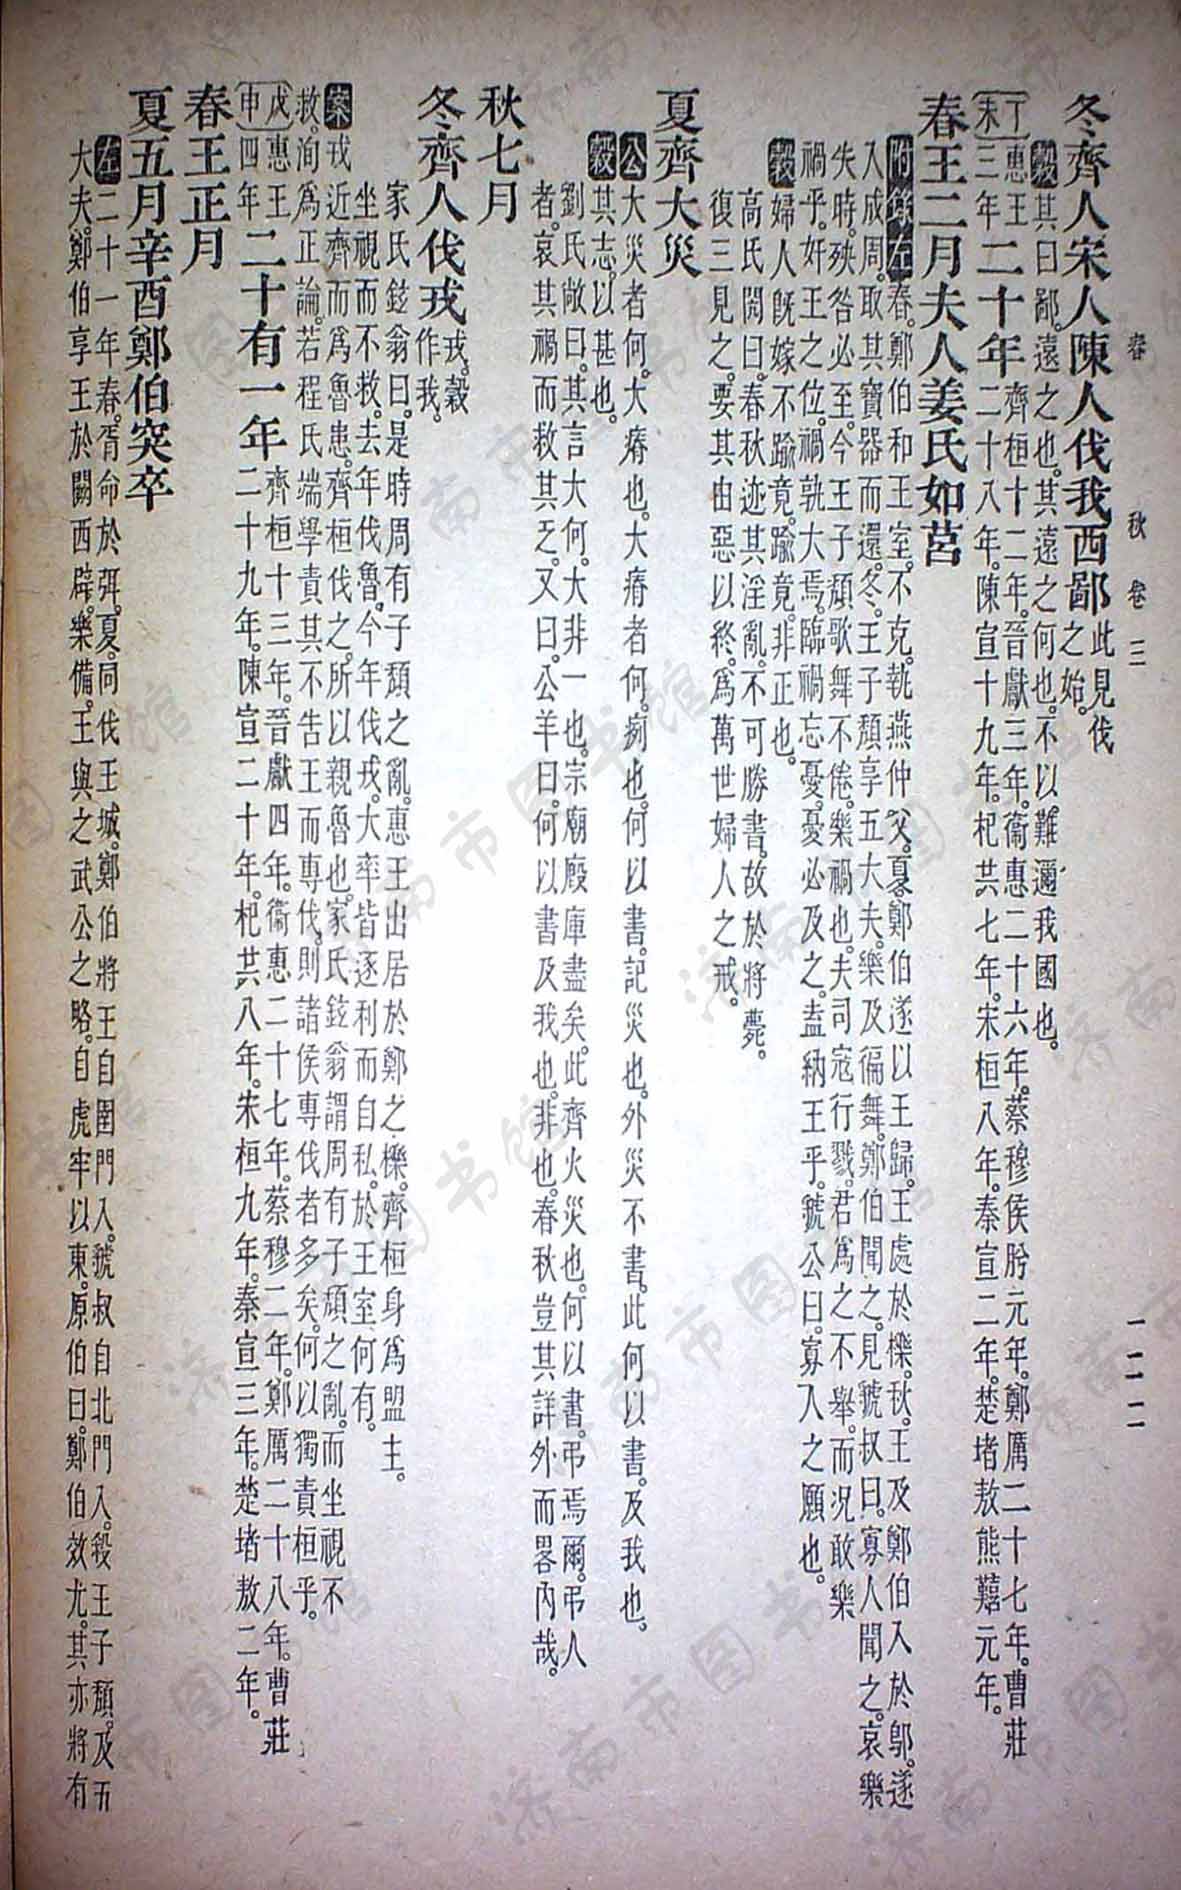 春秋 卷三 一二二
冬齊人宋人陳人伐我西鄙此見伐之始。
穀其曰鄙。遠之也。其遠之何也。不以難邇我國也。
丁未惠王三年二十年齊桓十二年。晉獻三年。衞惠二十六年。蔡穆侯肸元年。鄭厲二十七年。曹莊二十八年。陳宣十九年。杞共七年。宋桓八年。秦宣二年。楚堵敖熊囏元年。
春王二月夫人姜氏如莒
附錄左春。鄭伯和王室。不克。執燕仲父。夏。鄭伯遂以王歸。王處於櫟。秋。王及鄭伯入於鄔。遂
入成周。取其寶器而還。冬。王子頹享五大夫。樂及徧舞。鄭伯聞之。見虢叔曰。寡人聞之。哀樂
失時。殃咎必至。今王子頹歌舞不倦。樂禍也。夫司寇行戮。君爲之不舉。而況敢樂
禍乎。奸王之位。禍孰大焉。臨禍忘憂。憂必及之。盍納王乎。虢公曰。寡人之願也。
穀婦人旣嫁不踰竟。踰竟。非正也。
高氏閌曰。春秋迹其淫亂。不可勝書。故於將薨。
復三見之。要其由惡以終。爲萬世婦人之戒。
夏齊大災
公大災者何。大瘠也。大瘠者何。㾐也。何以書。記災也。外災不書。此何以書。及我也。
穀其志。以甚也。
劉氏敞曰。其言大何。大非一也。宗廟廄庫盡矣。此齊火災也。何以書。弔焉爾。弔人
者。哀其禍而救其乏。又曰。公羊曰。何以書及我也。非也。春秋豈其詳外而畧內哉。
秋七月
冬齊人伐戎戎。穀作我。
家氏鉉翁曰。是時周有子頹之亂。惠王出居於鄭之櫟。齊桓身爲盟主。
坐視而不救。去年伐魯。今年伐戎。大率皆逐利而自私。於王室何有。
案戎近齊而爲魯患。齊桓伐之。所以親魯也。家氏鉉翁謂周有子頹之亂。而坐視不
救。洵爲正論。若程氏端學責其不告王而專伐。則諸侯專伐者多矣。何以獨責桓乎。
戊申惠王四年二十有一年齊桓十三年。晉獻四年。衞惠二十七年。蔡穆二年。鄭厲二十八年。曹莊二十九年。陳宣二十年。杞共八年。宋桓九年。秦宣三年。楚堵敖二年。
春王正月
夏五月辛酉鄭伯突卒
左二十一年春。胥命於弭。夏。同伐王城。鄭伯將王自圉門入。虢叔自北門入。殺王子頹。及五
大夫。鄭伯享王於闕西辟。樂備。王與之武公之略。自虎牢以東。原伯曰。鄭伯效尤。其亦將有